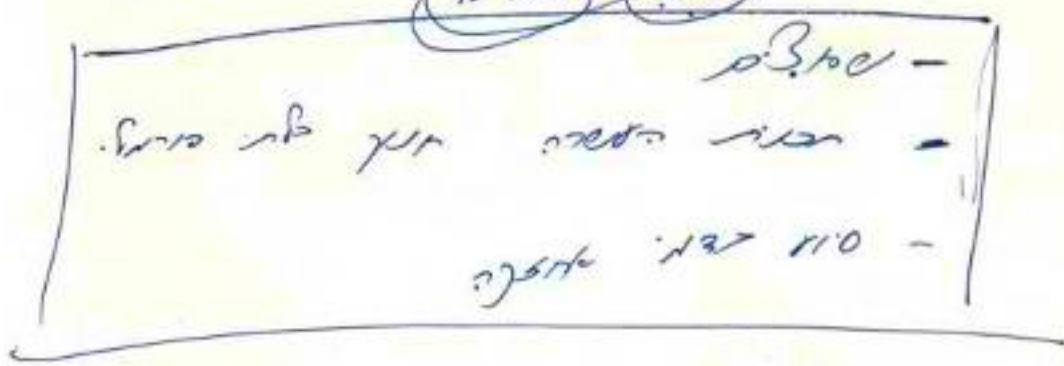 - שפ"צים
- תכנית העשרה חינוך בלתי פורמלי.
- סיוע בדמי אחזקה